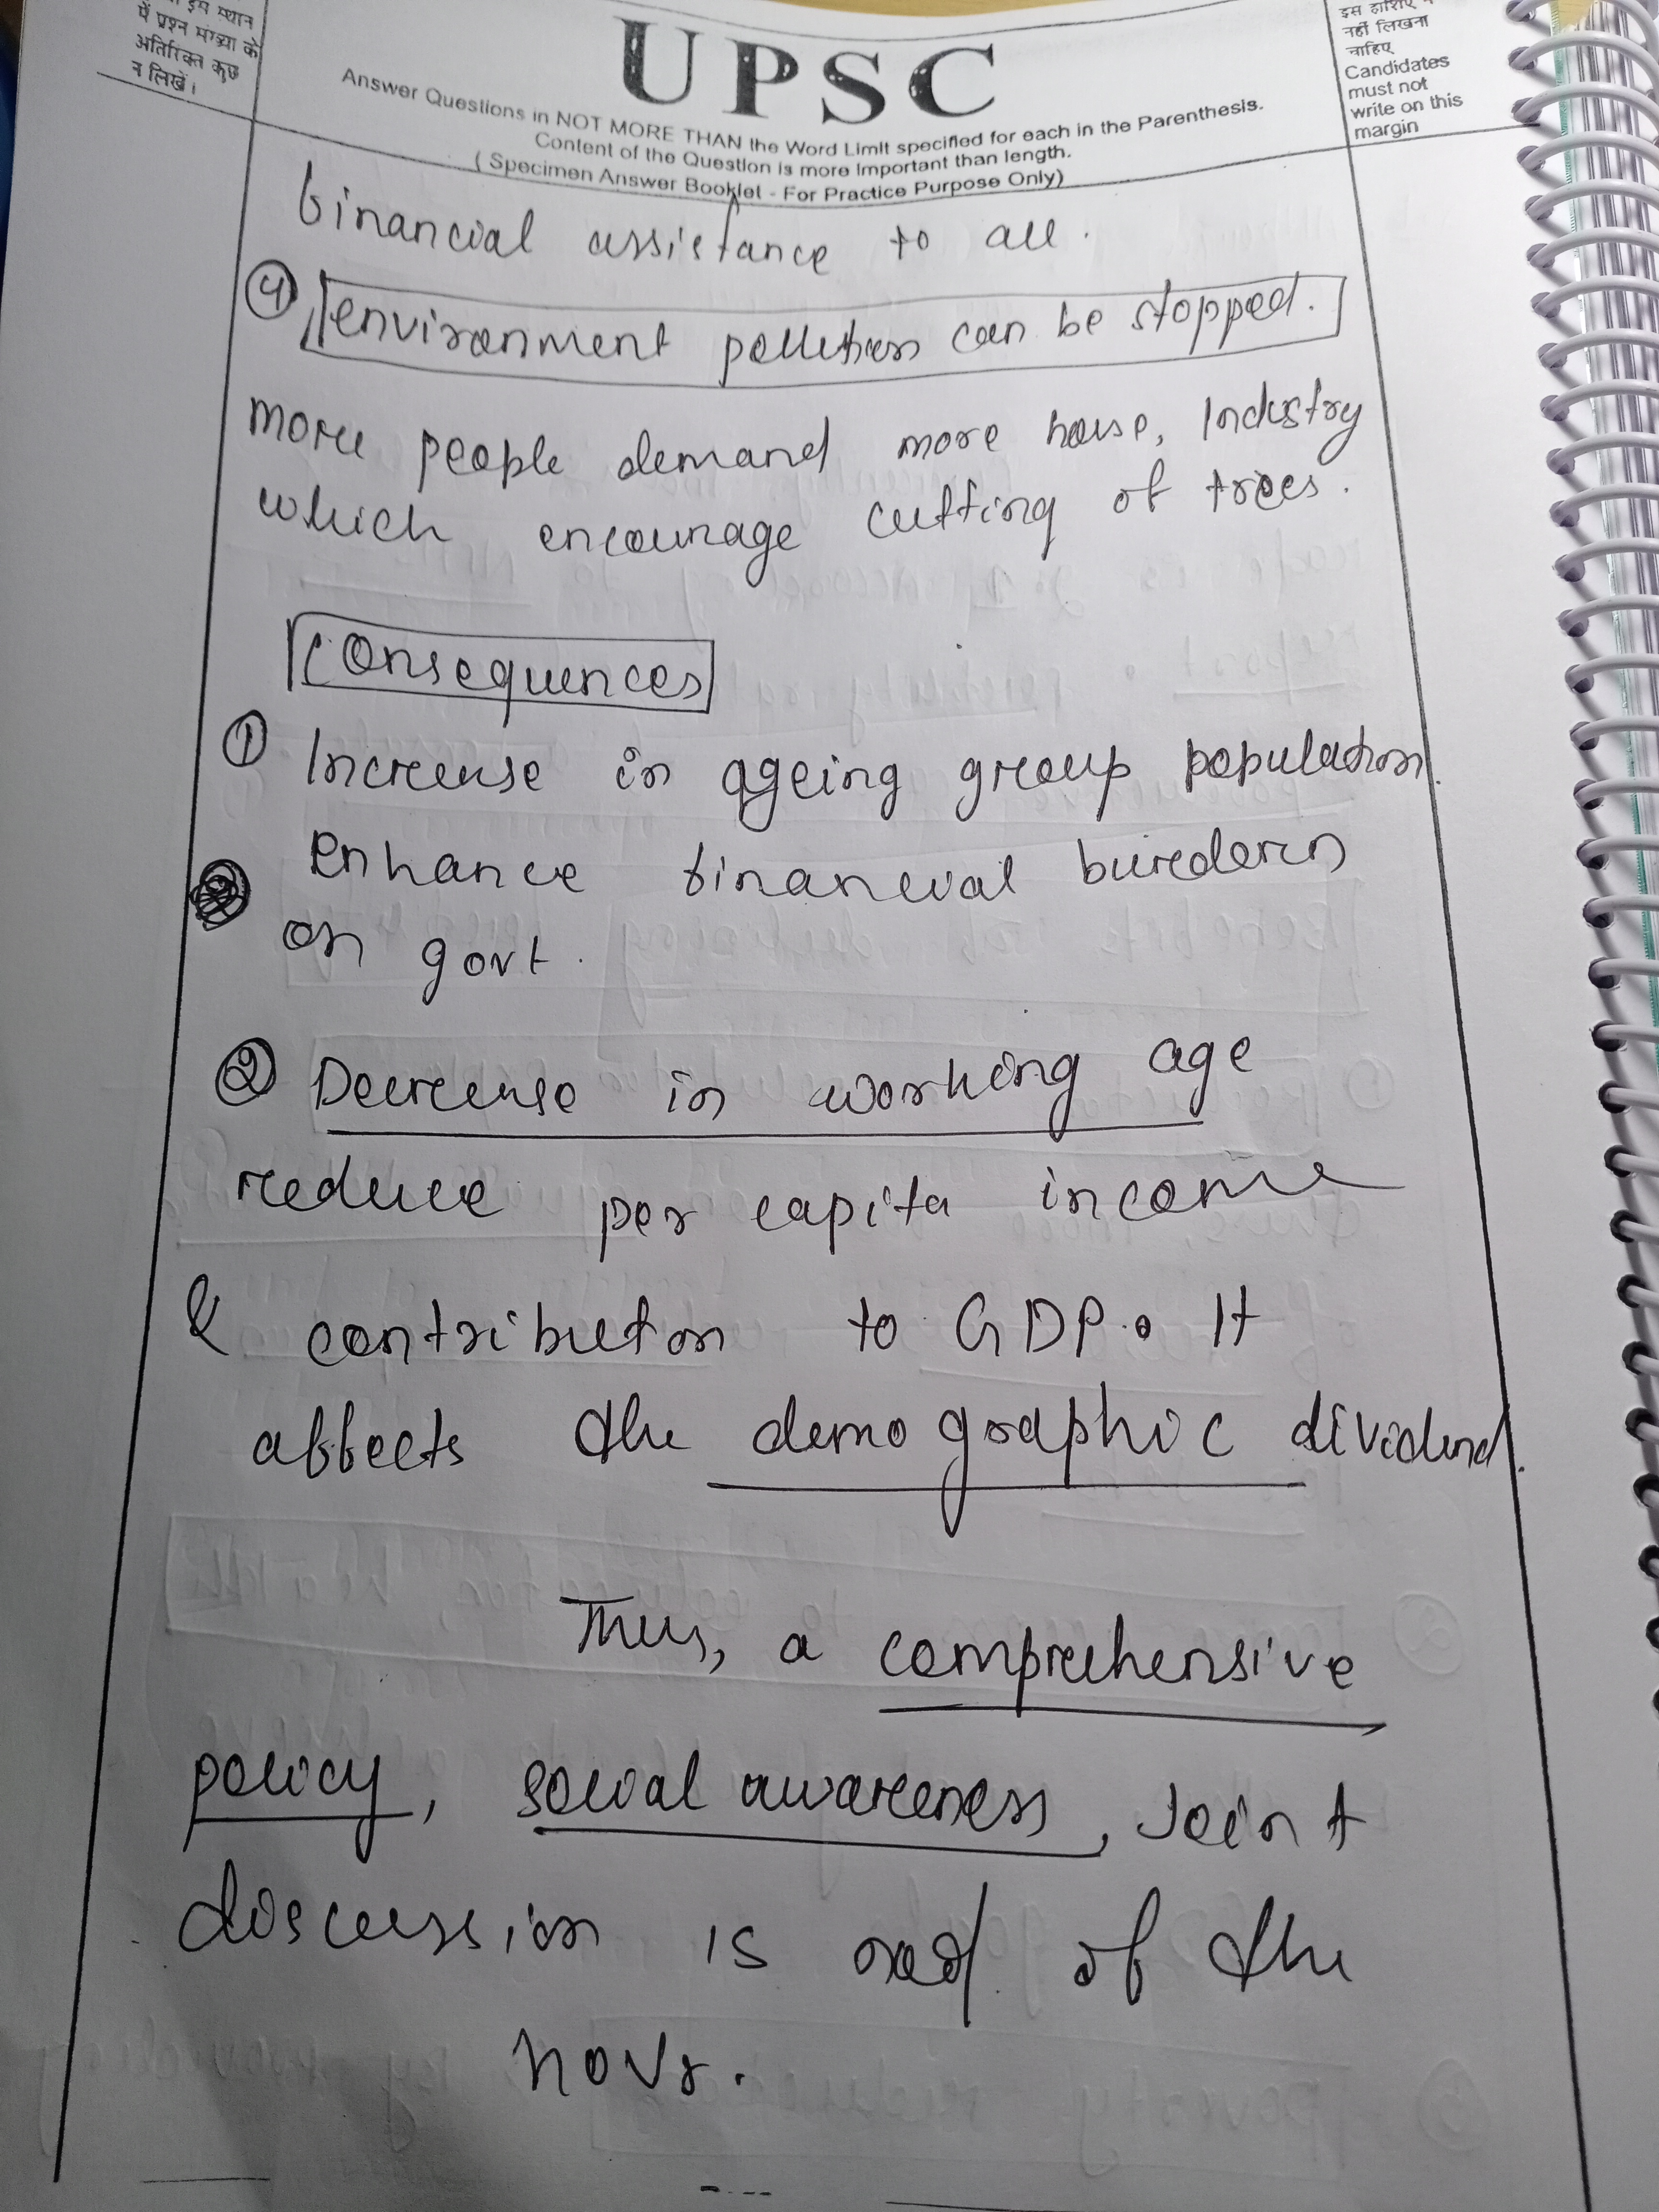 इस स्थान
में प्रश्न संख्या के
अतिरिक्त कुछ
न लिखें।
UPSC
Answer Questions in NOT MORE THAN the Word Limit specified for each in the Parenthesis.
Content of the Question is more Important than length.
( Specimen Answer Booklet - For Practice Purpose Only)
इस हाशिए
नहीं लिखना
चाहिए
Candidates
must not
write on this
margin
financial assistance to all.
④ environment pollution can be stopped.
more people demand more house, Industry
which encourage cutting of trees.
Consequences
① Increase in ageing group population.
enhance financial burden
on govt.
② Decrease in working age
reduce per capita income
& contribution to GDP. It
affects the demographic dividend.
Thus, a comprehensive
policy, social awareness, Joint
discussion is need of the
hour.